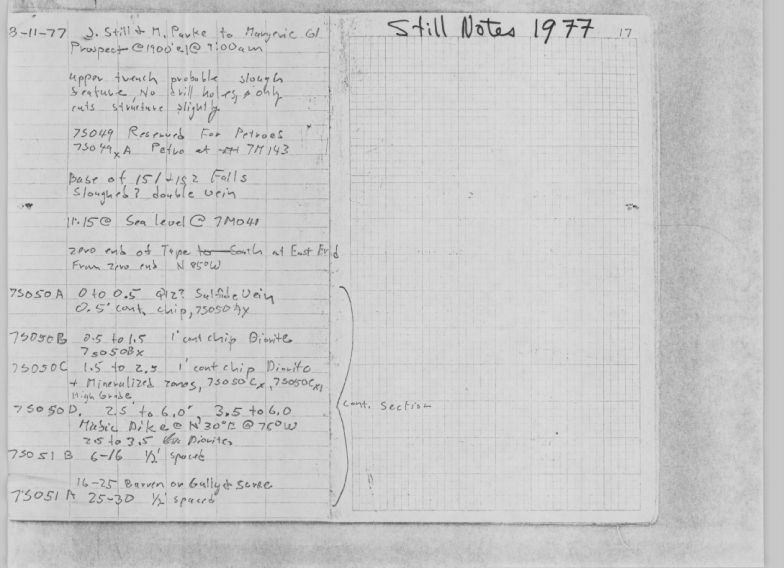 Still Notes 1977
17
8-11-77 J. Still & M. Parke to Margeric Gl
Prospect @ 1900'el @ 9:00am
upper trench probable slough
feature, No drill holes, only
cuts structure slightly
7S049 Reserved For Petroes
7S049xA Petro at 7M143
Base of 151 + 152 Falls
Sloughed? double vein
11:15 @ Sea level @ 7M041
zero end of Tape to South at East End
From zero end N 85°W
7S050A 0 to 0.5 Qtz? Sulfide Vein
0.5' cont. chip, 7S050Ax
7S050B 0.5 to 1.5 1' cont chip Diorite
7S050Bx
7S050C 1.5 to 2.5 1' cont chip Diorite
+ Mineralized zones, 7S050Cx, 7S050Cx1
High Grade
7S050D. 2.5' to 6.0', 3.5 to 6.0
Mafic Dike @ N 30°E @ 76°W
2.5 to 3.5 Diorite
Cont. Section
7S051B 6-16 ½' spaced
16-25 Barren or Gully &
7S051A 25-30 ½' spaced